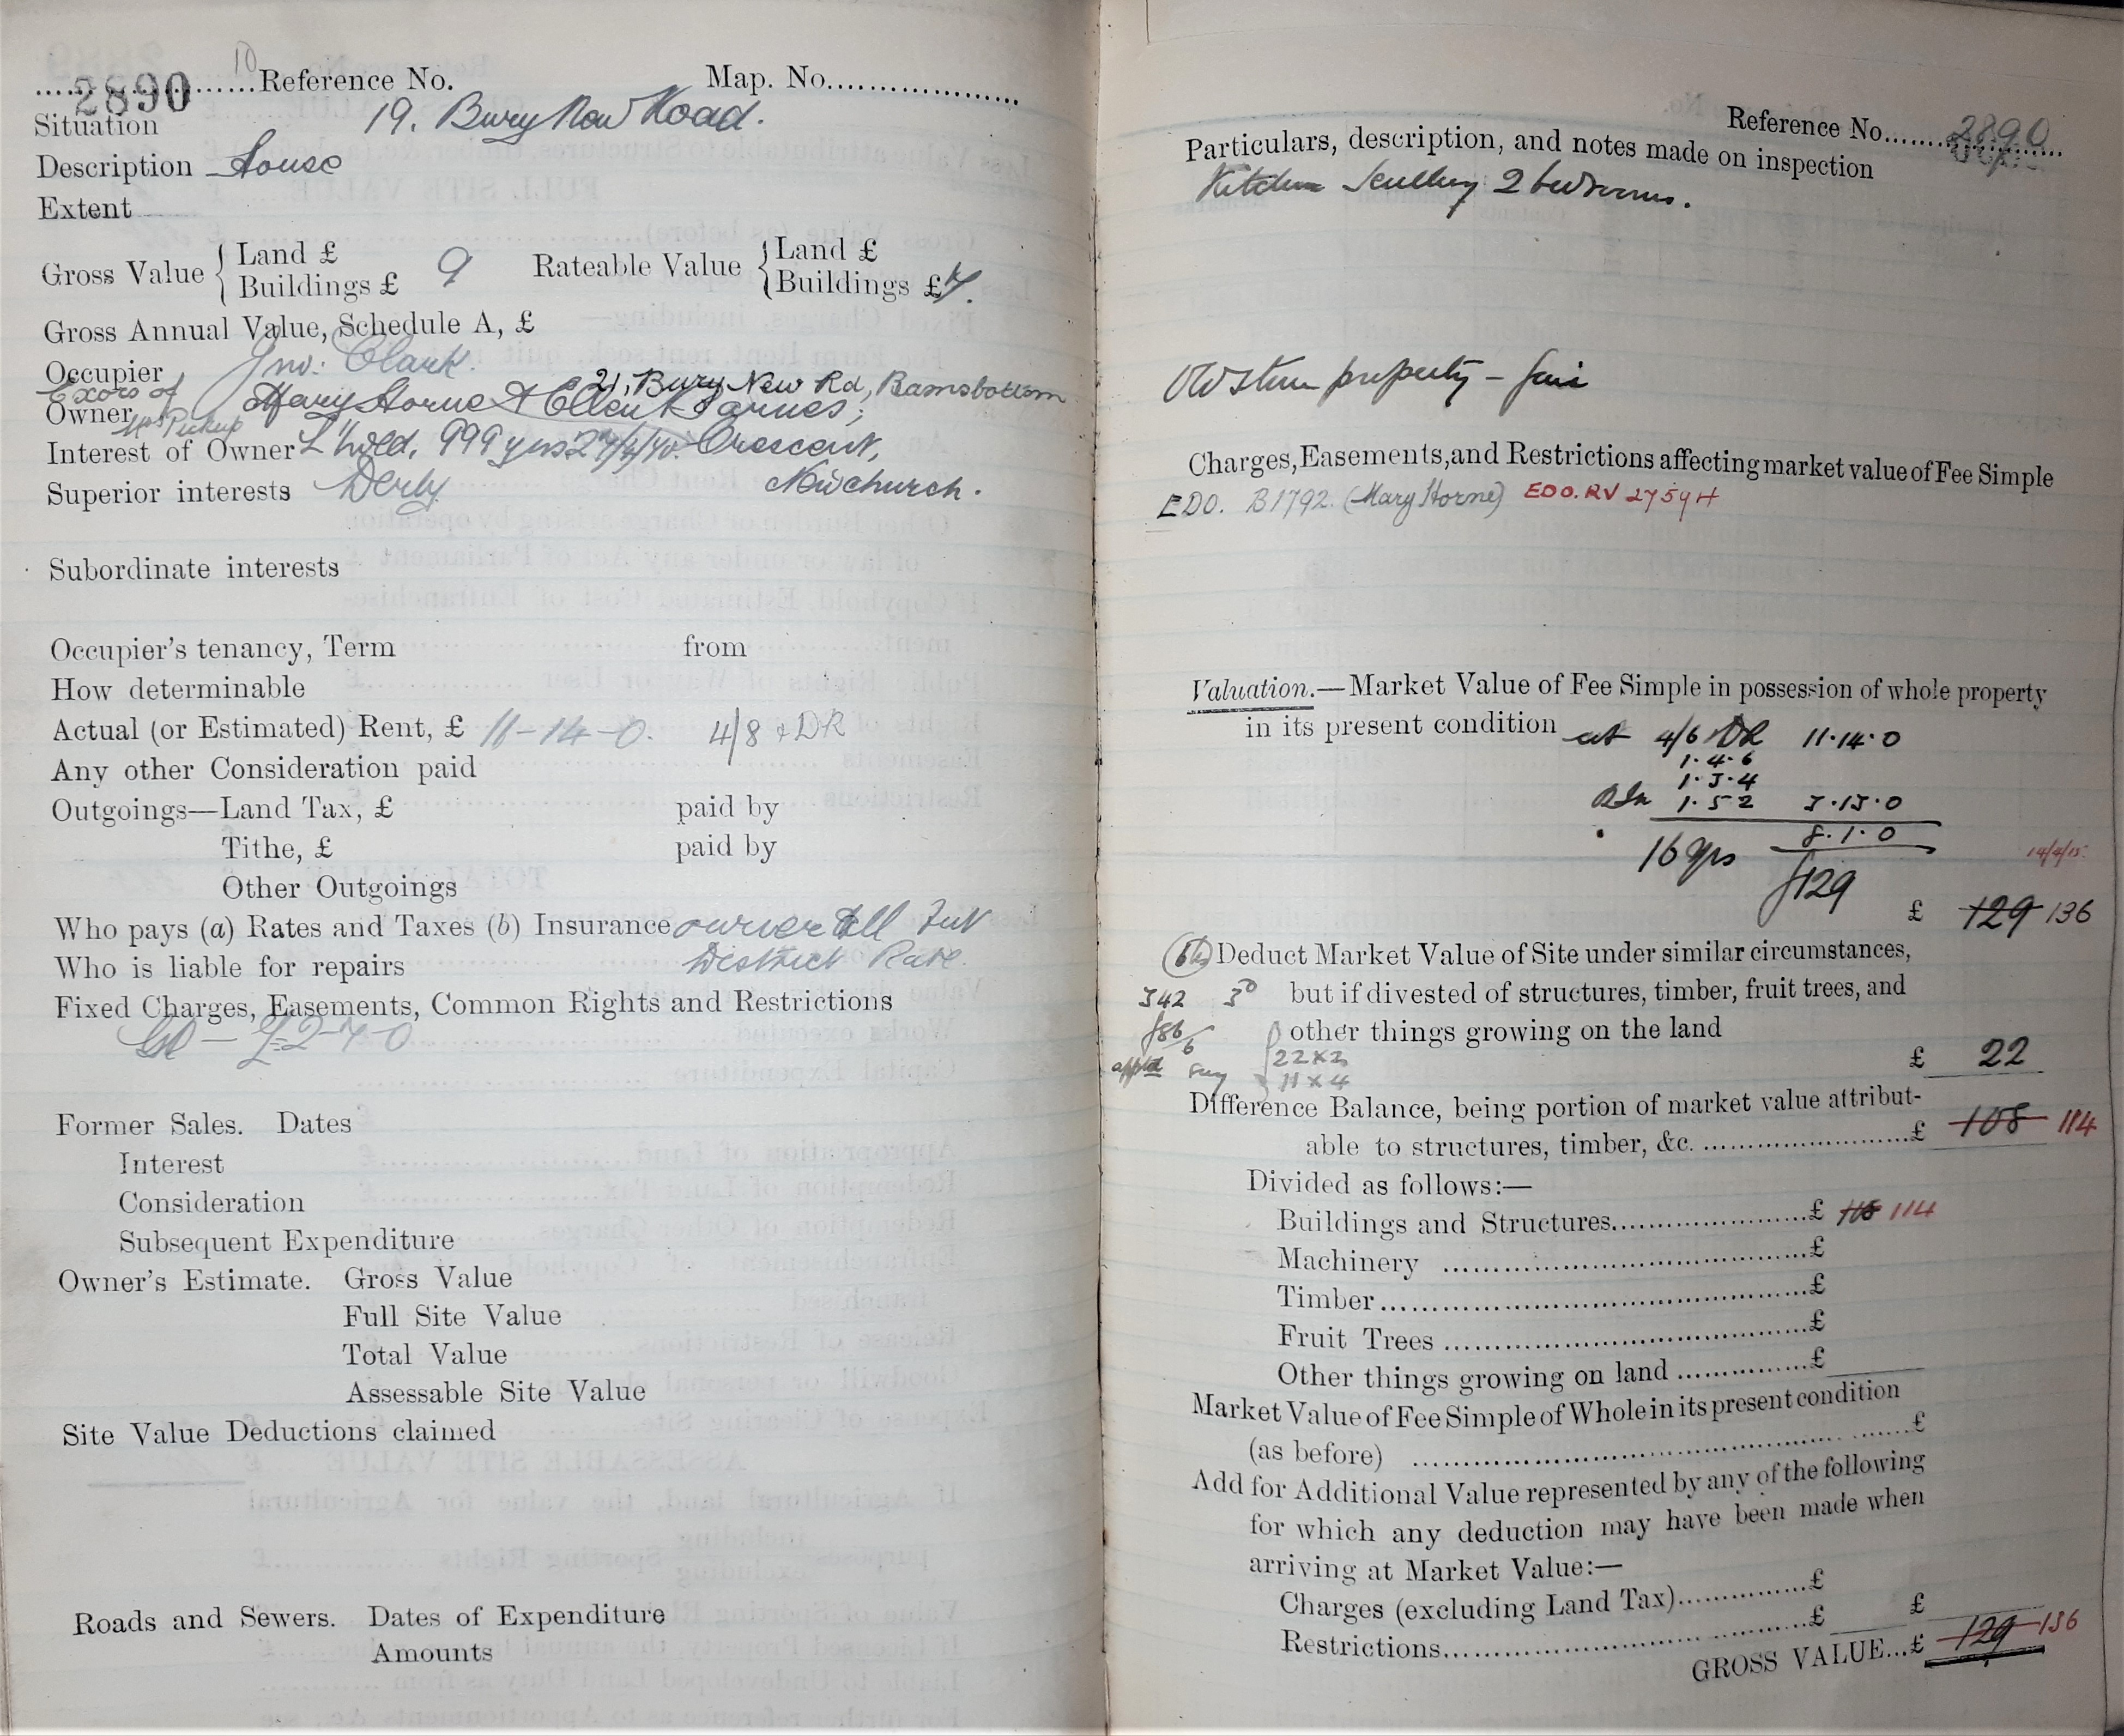 10
2890 Reference No. Map. No.
Situation 19. Bury New Road.
Description House
Extent
Gross Value { Land £ Rateable Value { Land £
Buildings £ 9 Buildings £ 7.
Gross Annual Value, Schedule A, £
Occupier Jno: Clark.
Exors of 21, Bury New Rd, Ramsbottom
Owner Mary Horne & Ellen Barnes;
Mrs Pickup
Interest of Owner L'hold, 999 yrs Crescent,
Superior interests Derby Newchurch.
Subordinate interests
Occupier's tenancy, Term from
How determinable
Actual (or Estimated) Rent, £ 11-14-0. 4/8 + DR
Any other Consideration paid
Outgoings—Land Tax, £ paid by
Tithe, £ paid by
Other Outgoings
Who pays (a) Rates and Taxes (b) Insurance owner all but
Who is liable for repairs District Rate.
Fixed Charges, Easements, Common Rights and Restrictions
£2-7-0
Former Sales. Dates
Interest
Consideration
Subsequent Expenditure
Owner's Estimate. Gross Value
Full Site Value
Total Value
Assessable Site Value
Site Value Deductions claimed
Roads and Sewers. Dates of Expenditure
Amounts
Reference No. 2890
Particulars, description, and notes made on inspection
Kitchen Scullery 2 bedrooms.
Old stone property – fair
Charges, Easements, and Restrictions affecting market value of Fee Simple
EDO. B1792. (Mary Horne) EDO. RV 2759H
Valuation.—Market Value of Fee Simple in possession of whole property
in its present condition at 4/6 DR 11·14·0
1·4·6
1·3·4
1·5 2 3·13·0
8·1·0
16 yrs
£129
14/4/15.
£ 129 136
Deduct Market Value of Site under similar circumstances,
342 3D but if divested of structures, timber, fruit trees, and
£86/6 other things growing on the land
appld say 22 x 3
11 x 4
£ 22
Difference Balance, being portion of market value attribut-
able to structures, timber, &c. £ 108 114
Divided as follows:—
Buildings and Structures £ 114
Machinery £
Timber £
Fruit Trees £
Other things growing on land £
Market Value of Fee Simple of Whole in its present condition
(as before) £
Add for Additional Value represented by any of the following
for which any deduction may have been made when
arriving at Market Value:—
Charges (excluding Land Tax) £
Restrictions £ £
GROSS VALUE...£ 129 136